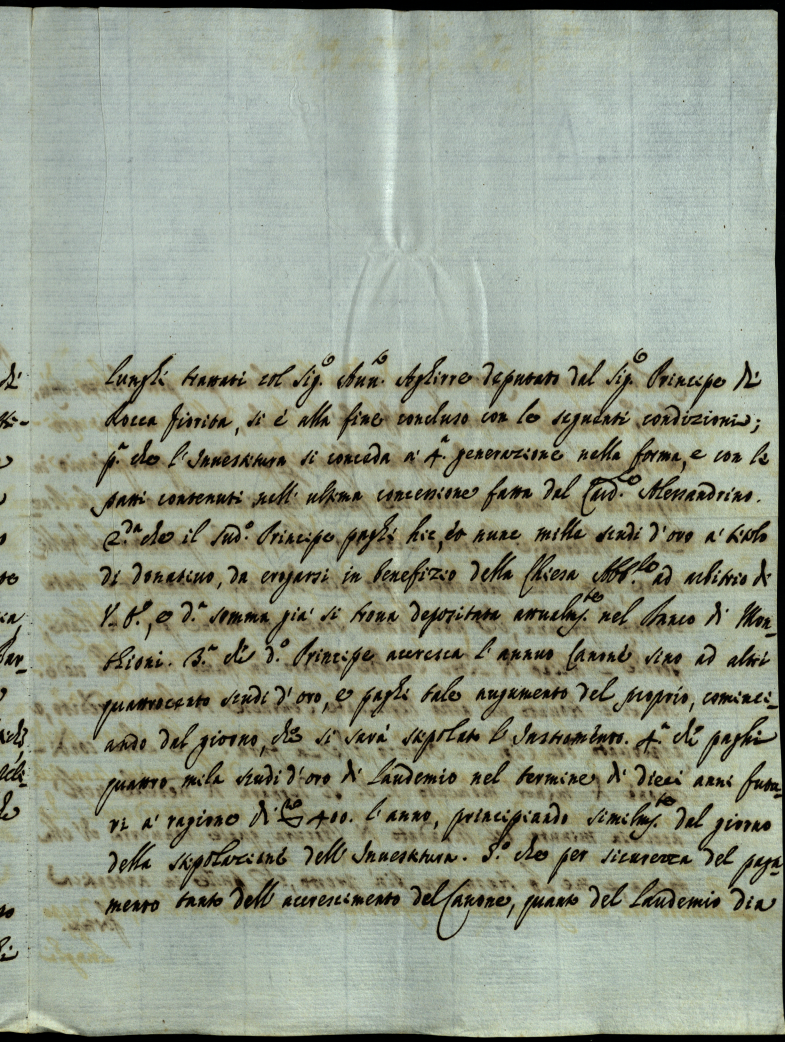 lunghi trattati col Sig.º Avv.to Aghirre deputato dal Sig.º Principe di
Rocca fiorita, si é alla fine concluso con le seguenti condizioni;
p.ª che l'Investitura si conceda á 4.ª generazione nella forma, e con li
patti contenuti nell'ultima concessione fatta dal Card.º Alessandrino.
2.da che il Sud.º Principe paghi hic, et nunc mille scudi d'oro á titolo
di donativo, da erogarsi in benefizio della Chiesa Abb.le ad arbitrio di
V. E., e d.ª somma giá si trova depositata attualm.te nel Banco di Mon-
thioni. 3.ª che d.º Principe accresca l'annuo Canone sino ad altri
quattrocento scudi d'oro, e paghi tale augumento del proprio, cominci-
ando dal giorno, che si sará stipolato l'Instromento. 4.ª che paghi
quattro mila scudi d'oro di Laudemio nel termine di dieci anni futu-
ri á ragione di 400. l'anno, principiando similm.te dal giorno
della stipolazione dell'Investitura. 5.º che per sicurezza del paga-
mento tanto dell'accrescimento del Canone, quanto del Laudemio dia